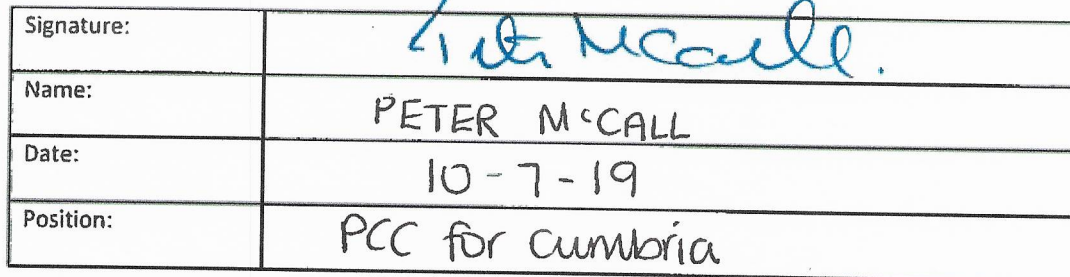 Signature: Peter McCall.
Name: PETER McCALL
Date: 10-7-19
Position: PCC for Cumbria